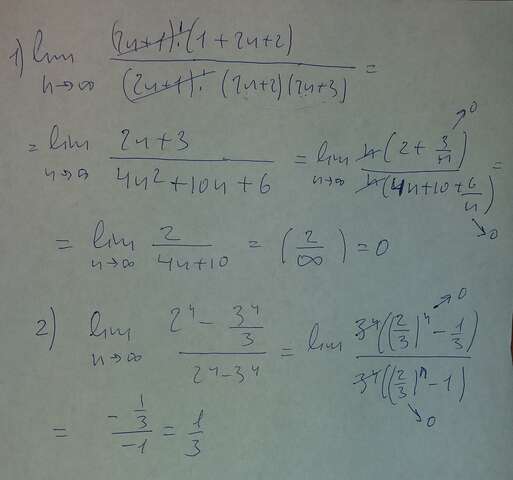 1) lim n→∞ (2n+1)!(1+2n+2) / (2n+1)!(2n+2)(2n+3) =
= lim n→∞ 2n+3 / 4n²+10n+6 = lim n→∞ n(2+3/n)→0 / n(4n+10+6/n)→0 =
= lim n→∞ 2 / 4n+10 = (2/∞) = 0
2) lim n→∞ 2ⁿ - 3ⁿ/3 / 2ⁿ-3ⁿ = lim 3ⁿ((2/3)ⁿ→0 - 1/3) / 3ⁿ((2/3)ⁿ→0 - 1)
= -1/3 / -1 = 1/3